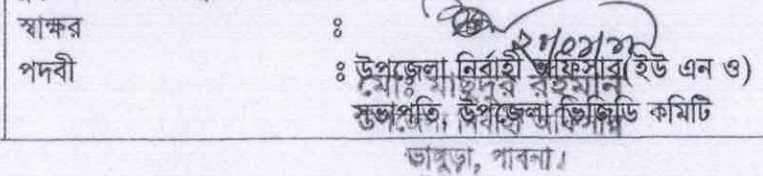 স্বাক্ষর :
পদবী : উপজেলা নির্বাহী অফিসার(ইউ এন ও)
মোঃ রহমান
সভাপতি, উপজেলা ভিজিডি কমিটি
উপজেলা নির্বাহী অফিসার
ভাঙ্গুড়া, পাবনা।